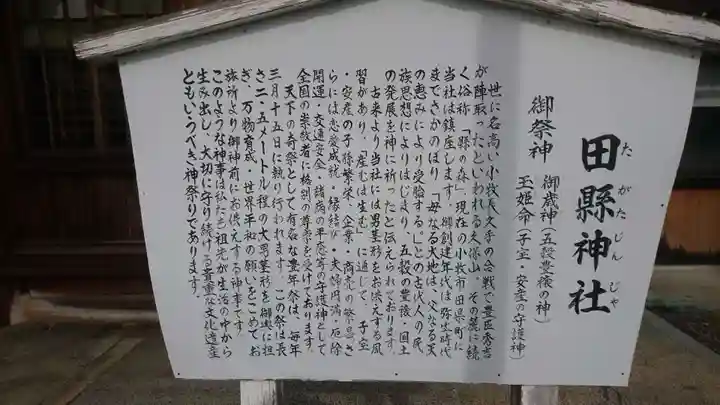 田縣神社
たがたじんじゃ
御祭神 御歳神(五穀豊穣の神)
玉姫命(子宝・安産の守護神)
世に名高い小牧長久手の合戦で豊臣秀吉
が陣取ったといわれる久保山、その麓に続
く俗称「縣の森」現在の小牧市田県町に
当社は鎮座します。御創建年代は弥生時代
までさかのぼり「母なる大地は、父なる天
の恵みにより受胎する。」との古代人の民
族思想によりはじまり、五穀の豊穣・国土
の発展を神に祈ったと伝えられております。
古来より当社には男茎形をお供えする風
習があり、「産むは生む」に通じて、子宝
・安産の子孫繁栄、企業・商売の繁昌さ
らには恋愛成就・縁結び・夫婦円満・厄除
開運・交通安全・諸病の平癒等の守護神として
全国の崇敬者に格別の尊崇を受けております。
天下の奇祭として有名な豊年祭は、毎年
三月十五日に執り行われます。この祭は長
さ二・五メートル程の大男茎形を御輿に担
ぎ、万物育成・世界平和の願いをこめて、お
旅所より御神前にお供えする神事です。
このような神事は私たち祖先が生活の中から
生み出し、大切に守り続ける貴重な文化遺産
ともいうべき神祭りであります。